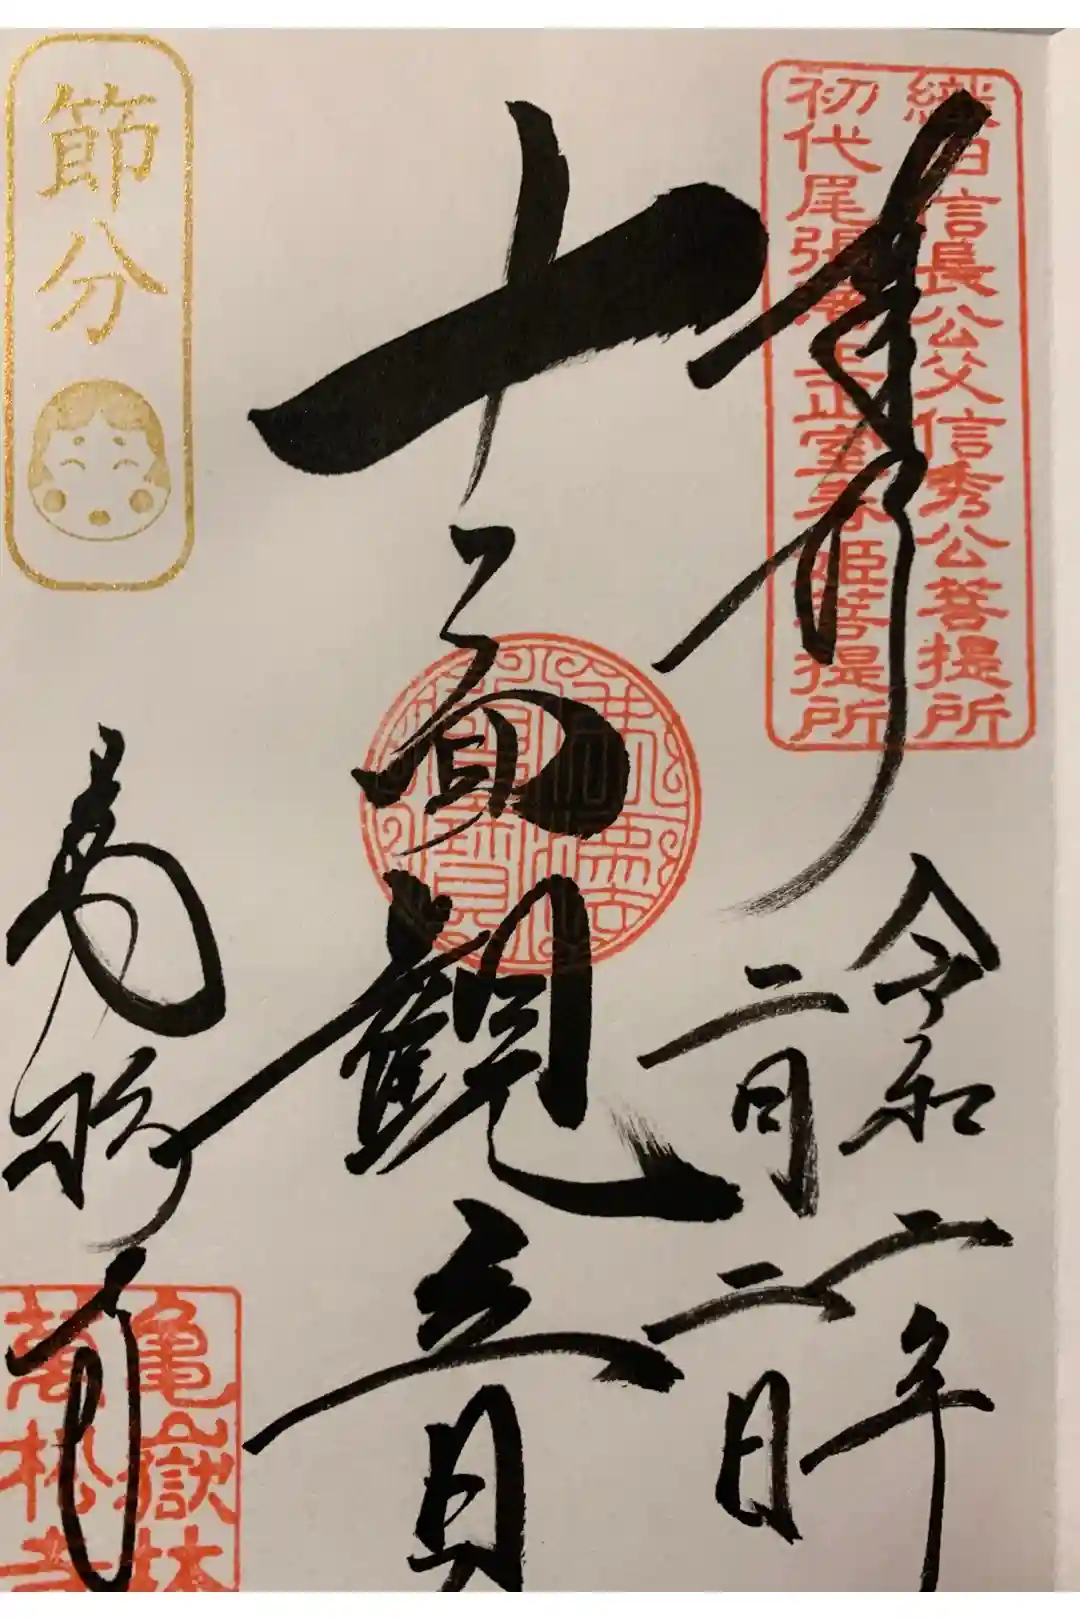 奉拝
織田信長公父信秀公菩提所
初代尾張藩主正室春姫菩提所
令和二年
二月二日
十一面観音
萬松寺
亀嶽林
萬松寺
節分